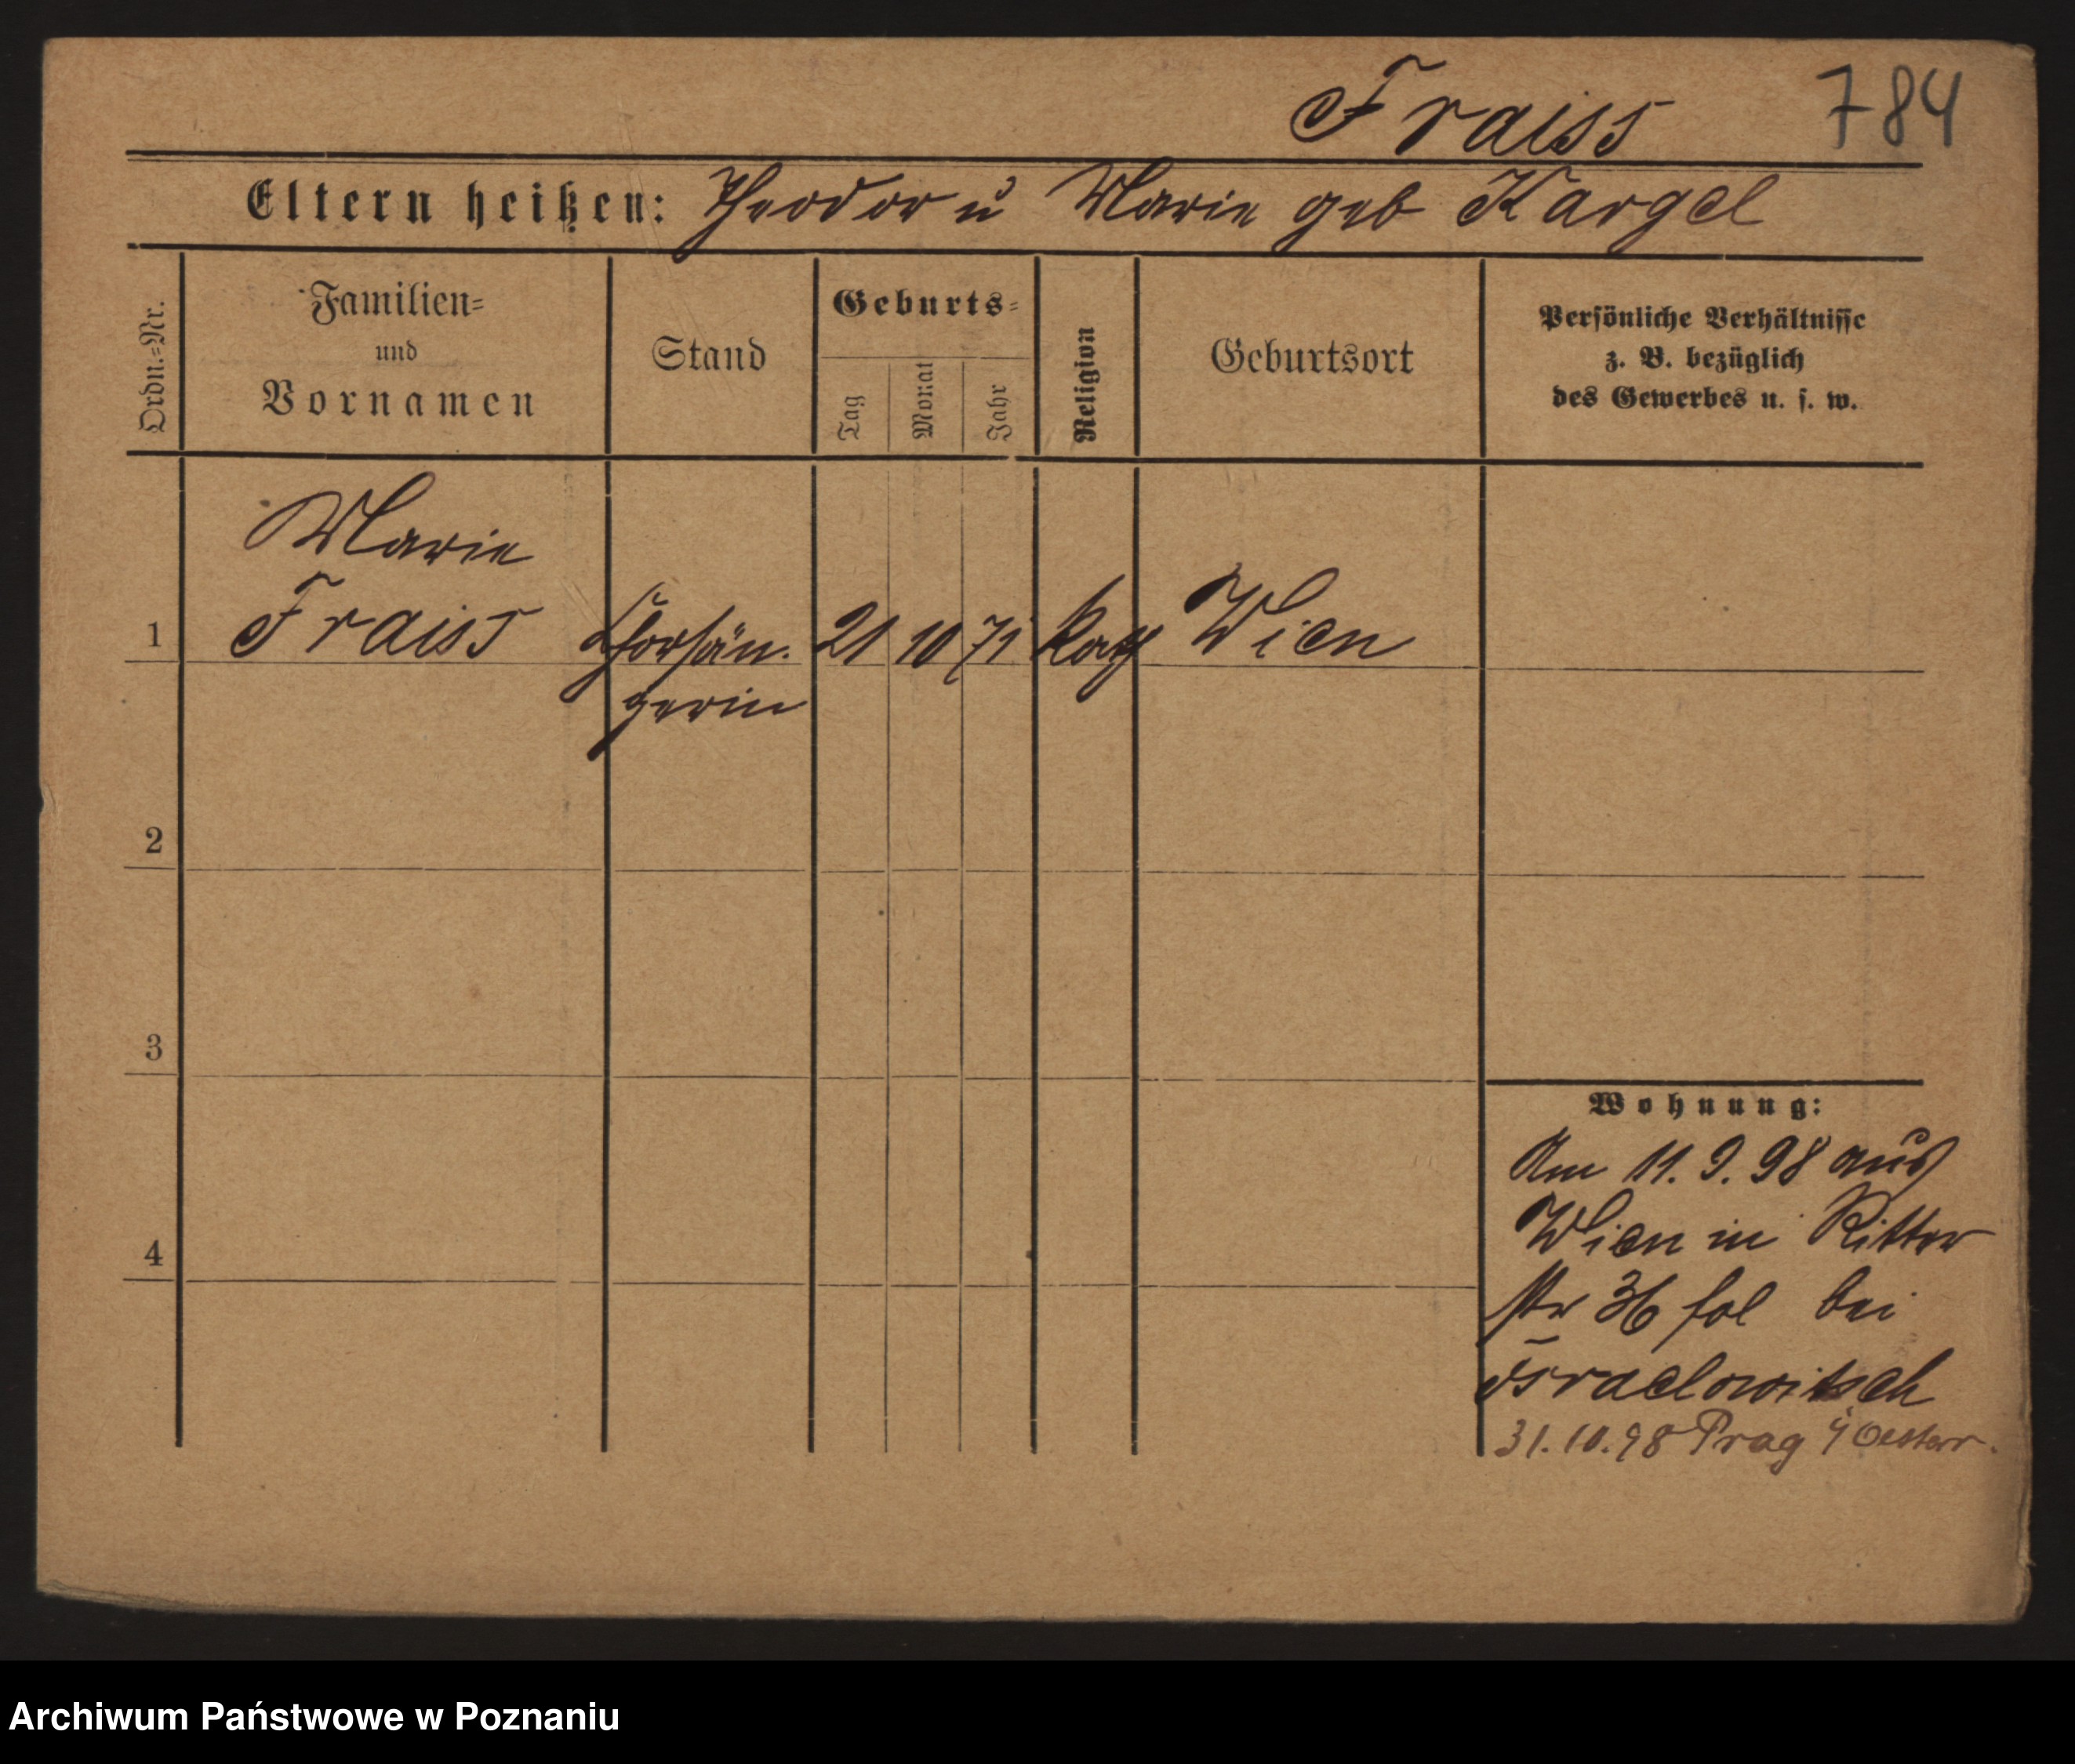 Fraiss 784
Eltern heißen: Theodor u Marie geb Kargel
Ordn.=Nr.
Familien=
und
Vornamen
Stand
Geburts=
Tag
Monat
Jahr
Religion
Geburtsort
Persönliche Verhältnisse
z. B. bezüglich
des Gewerbes u. s. w.
Marie
1 Fraiss Chorsän. 21 10 71 Kath Wien
gerin
2
3
4
Wohnung:
Am 11. 9. 98 aus
Wien in Ritter
str 36 bei
Israelowitsch
31.10.98 Prag Oesterr.
Archiwum Państwowe w Poznaniu